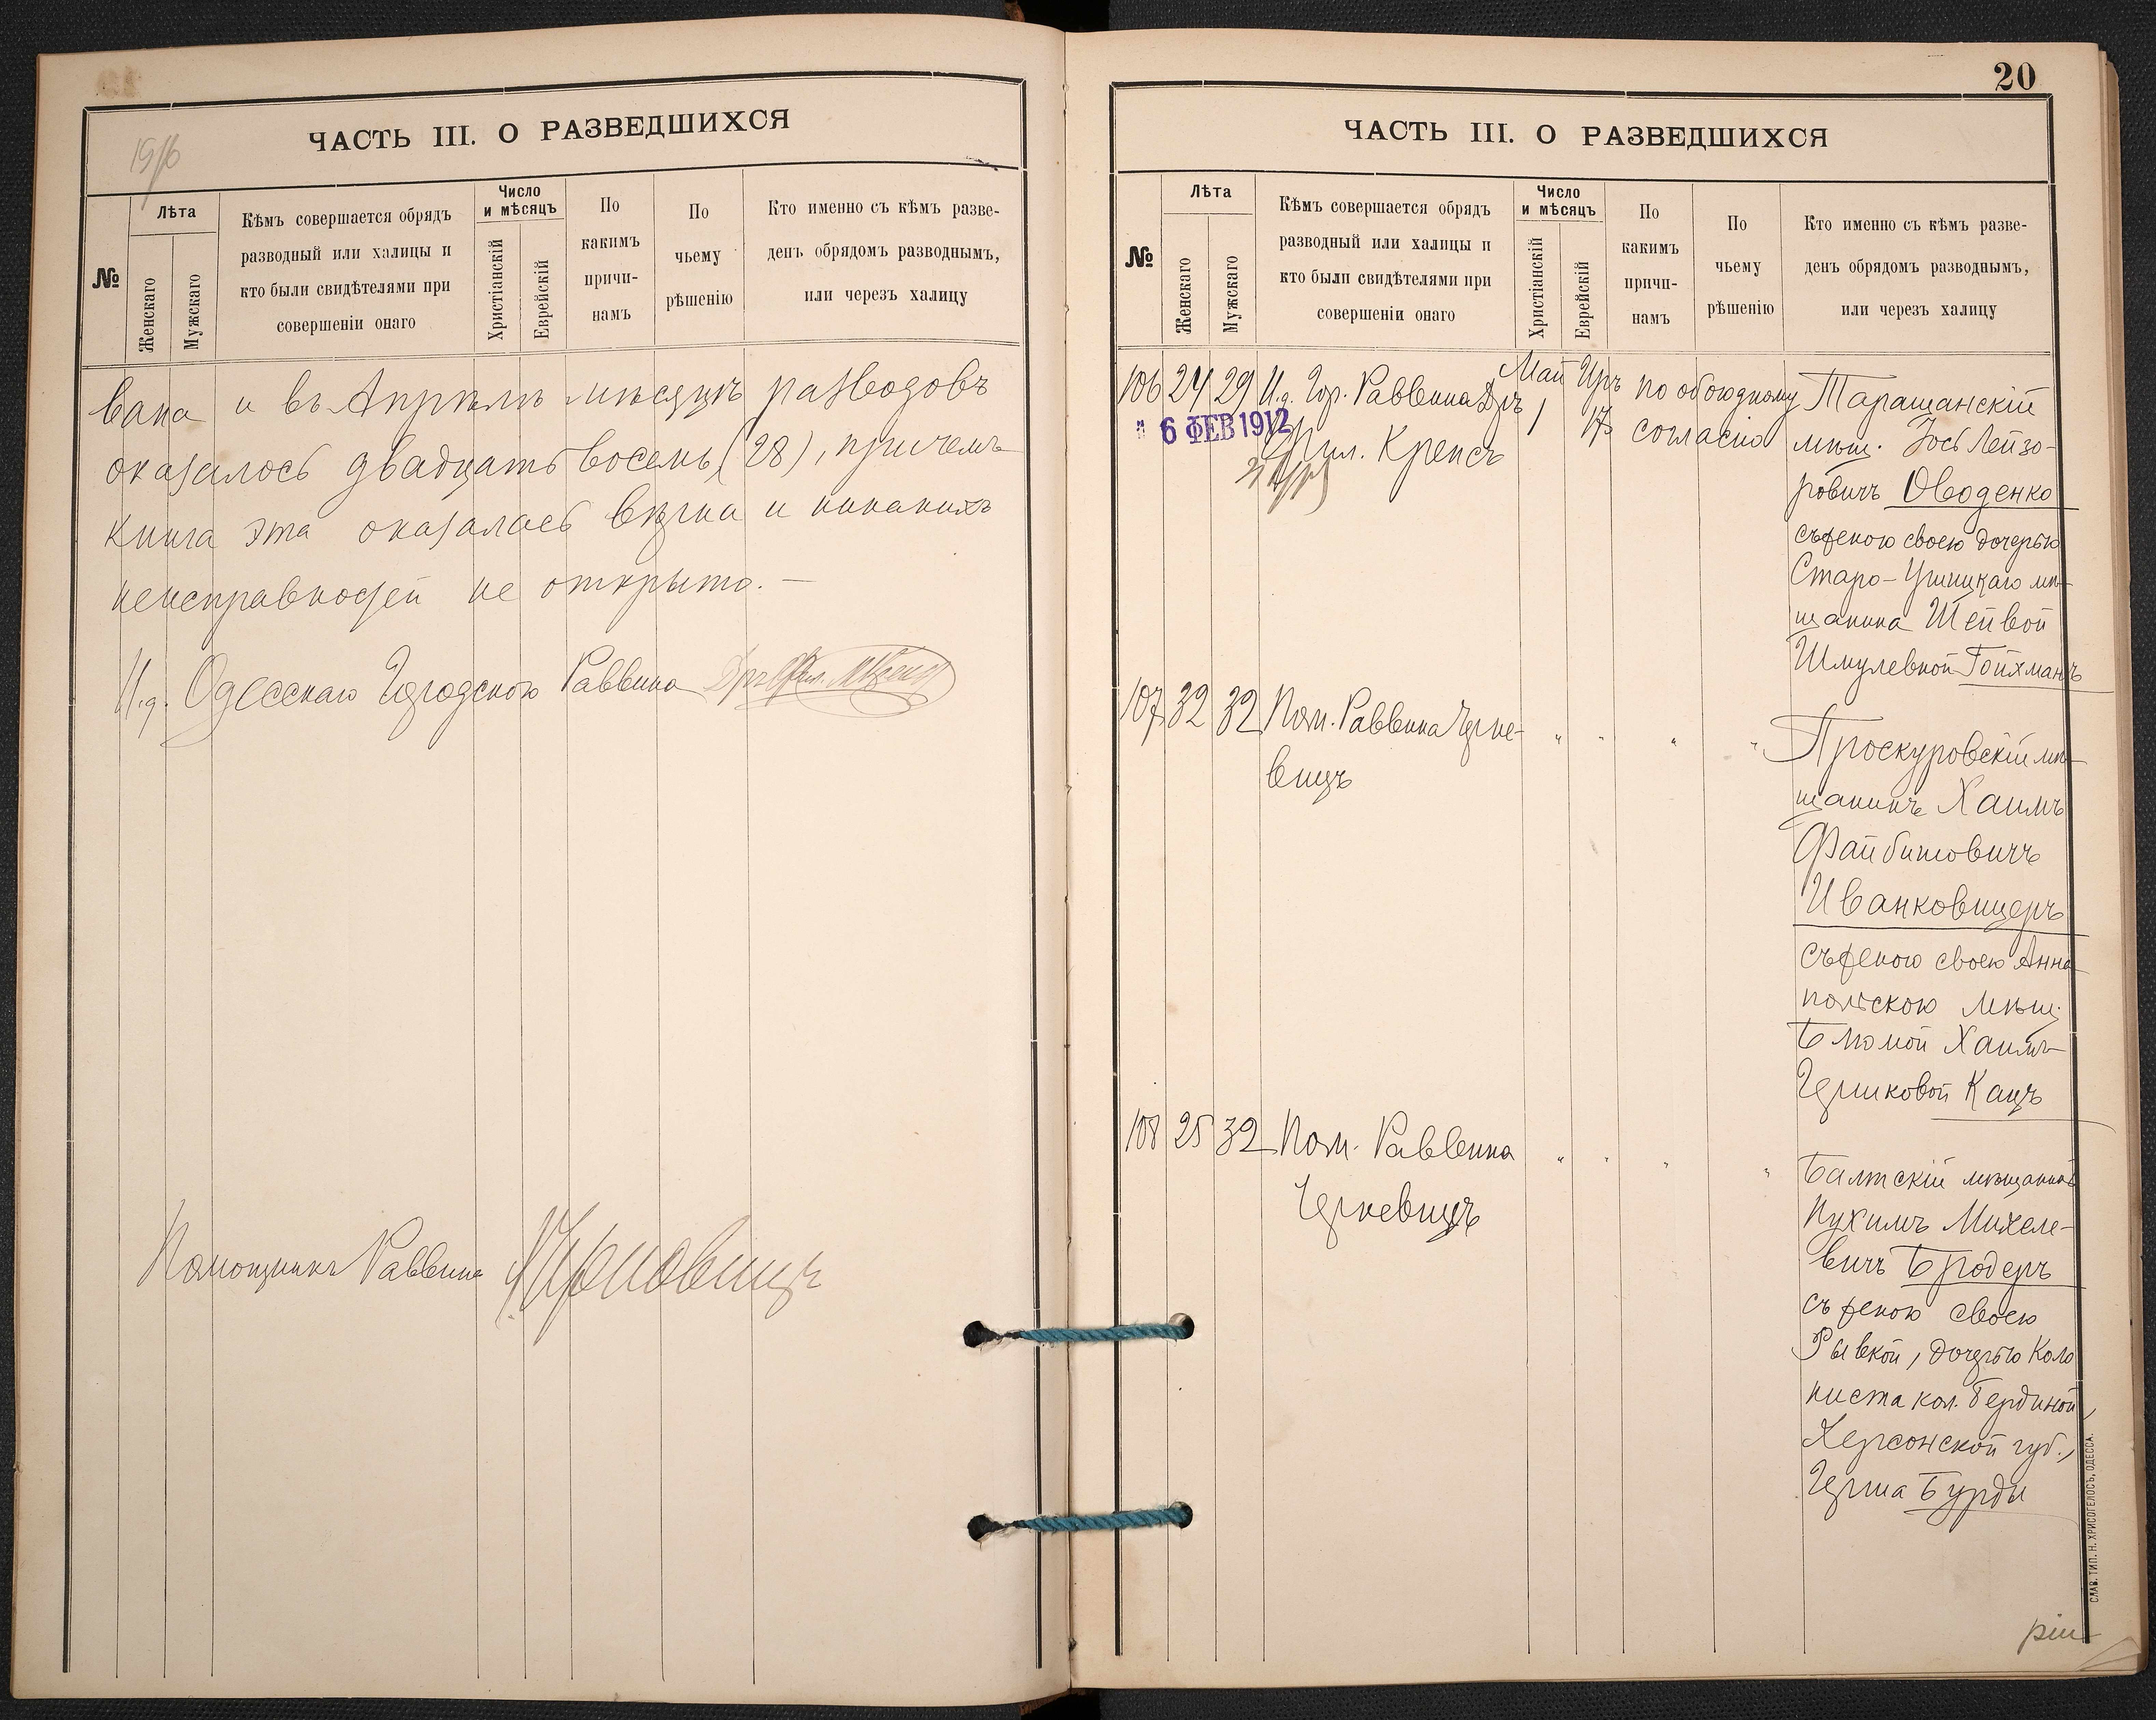 1916
ЧАСТЬ III. О РАЗВЕДШИХСЯ
№
Лѣта
Женскаго
Мужскаго
Кѣмъ совершается обрядъ
разводный или халицы и
кто были свидѣтелями при
совершеніи онаго
Число
и мѣсяцъ
Христіанскій
Еврейскій
По
какимъ
причи-
намъ
По
чьему
рѣшенію
Кто именно съ кѣмъ разве-
денъ обрядомъ разводнымъ,
или черезъ халицу
вана и въ Апрѣлѣ мѣсяцѣ разводовъ
оказалось двадцать восемь (28), причемъ
книга эта оказалась вѣрна и никакихъ
неисправностей не открыто. —
И.д. Одесскаго Городского Раввина Др.
Помощникъ Раввина Черновицъ
20
ЧАСТЬ III. О РАЗВЕДШИХСЯ
№
Лѣта
Женскаго
Мужскаго
Кѣмъ совершается обрядъ
разводный или халицы и
кто были свидѣтелями при
совершеніи онаго
Число
и мѣсяцъ
Христіанскій
Еврейскій
По
какимъ
причи-
намъ
По
чьему
рѣшенію
Кто именно съ кѣмъ разве-
денъ обрядомъ разводнымъ,
или черезъ халицу
106 24 29 И.д. Гор. Раввина Дръ
Фил. Крепсъ
Май 1
Иръ 17
по обоюдному
согласію
6 ФЕВ 1912
Таращанскій
мѣщ. Іось Лейзо-
ровичъ Оводенко
съ женою своею дочерью
Старо-Ушицкаго мѣ-
щанина Шейвой
Шмулевной Гойхманъ
107 32 32 Пом. Раввина Черне-
вицъ
" " " "
Проскуровскій мѣ-
щанинъ Хаимъ
Файбишовичъ
Иванковицеръ
съ женою своею Анна-
польскою мѣщ.
Блюмой Хаимъ-
Гершковой Кацъ
108 25 32 Пом. Раввина
Черневицъ
" " " "
Балтскій мѣщанинъ
Нухимъ Михеле-
вичъ Бродеръ
съ женою своею
Рывкой, дочерью коло
ниста кол.
Херсонской губ.,
Герша Бурды
СЛАВ. ТИП. Н. ХРИСОГЕЛОСЪ, ОДЕССА.